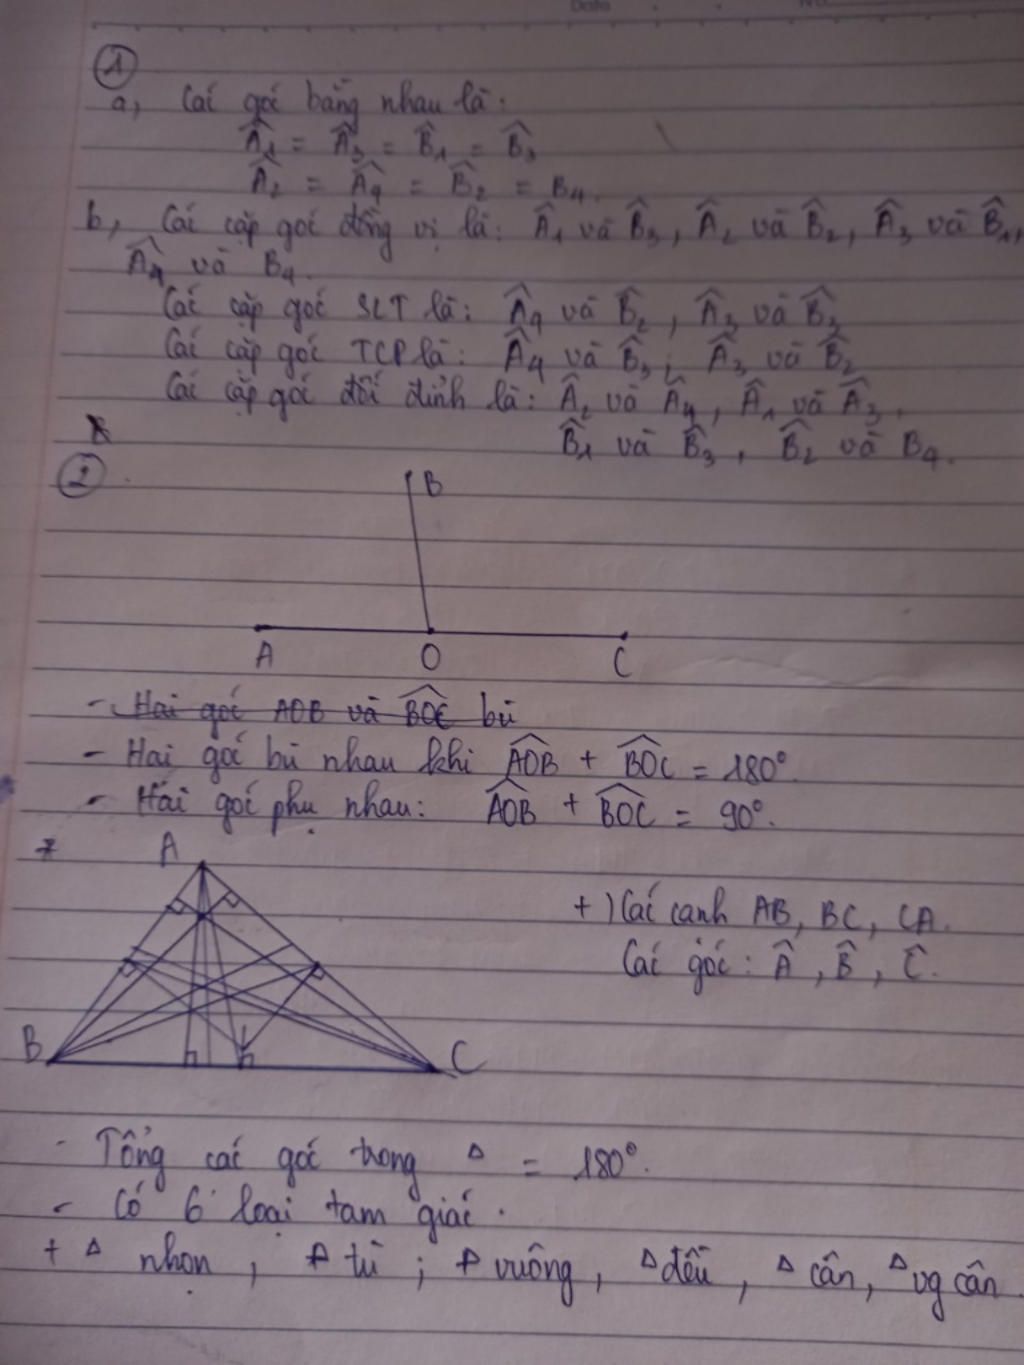 Date No
①
a, Các góc bằng nhau là:
Â₁ = Â₃ = B̂₁ = B̂₃
Â₂ = Â₄ = B̂₂ = B₄.
b, Các cặp góc đồng vị là: Â₁ và B̂₃, Â₂ và B̂₂, Â₃ và B̂₁,
Â₄ và B₄.
Các cặp góc SLT là: Â₄ và B̂₂, Â₃ và B̂₃
Các cặp góc TCP là: Â₄ và B̂₃; Â₃ và B̂₂
Các cặp góc đối đỉnh là: Â₂ và Â₄, Â₁ và Â₃,
B̂₁ và B̂₃, B̂₂ và B₄.
②
B
A O C
- Hai góc AOB và BOC bù
- Hai góc bù nhau khi AOB + BOC = 180°.
- Hai góc phụ nhau: AOB + BOC = 90°.
* A
+) Các cạnh AB, BC, CA.
Các góc: Â, B̂, Ĉ.
B C
- Tổng các góc trong Δ = 180°.
- Có 6 loại tam giác.
+ Δ nhọn, Δ tù; Δ vuông, Δ đều, Δ cân, Δ vg cân.